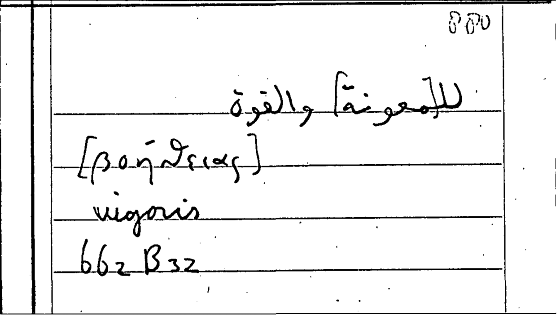 للـ[معونة] والقوة
[βοήθειας]
vigoris
662 B 32